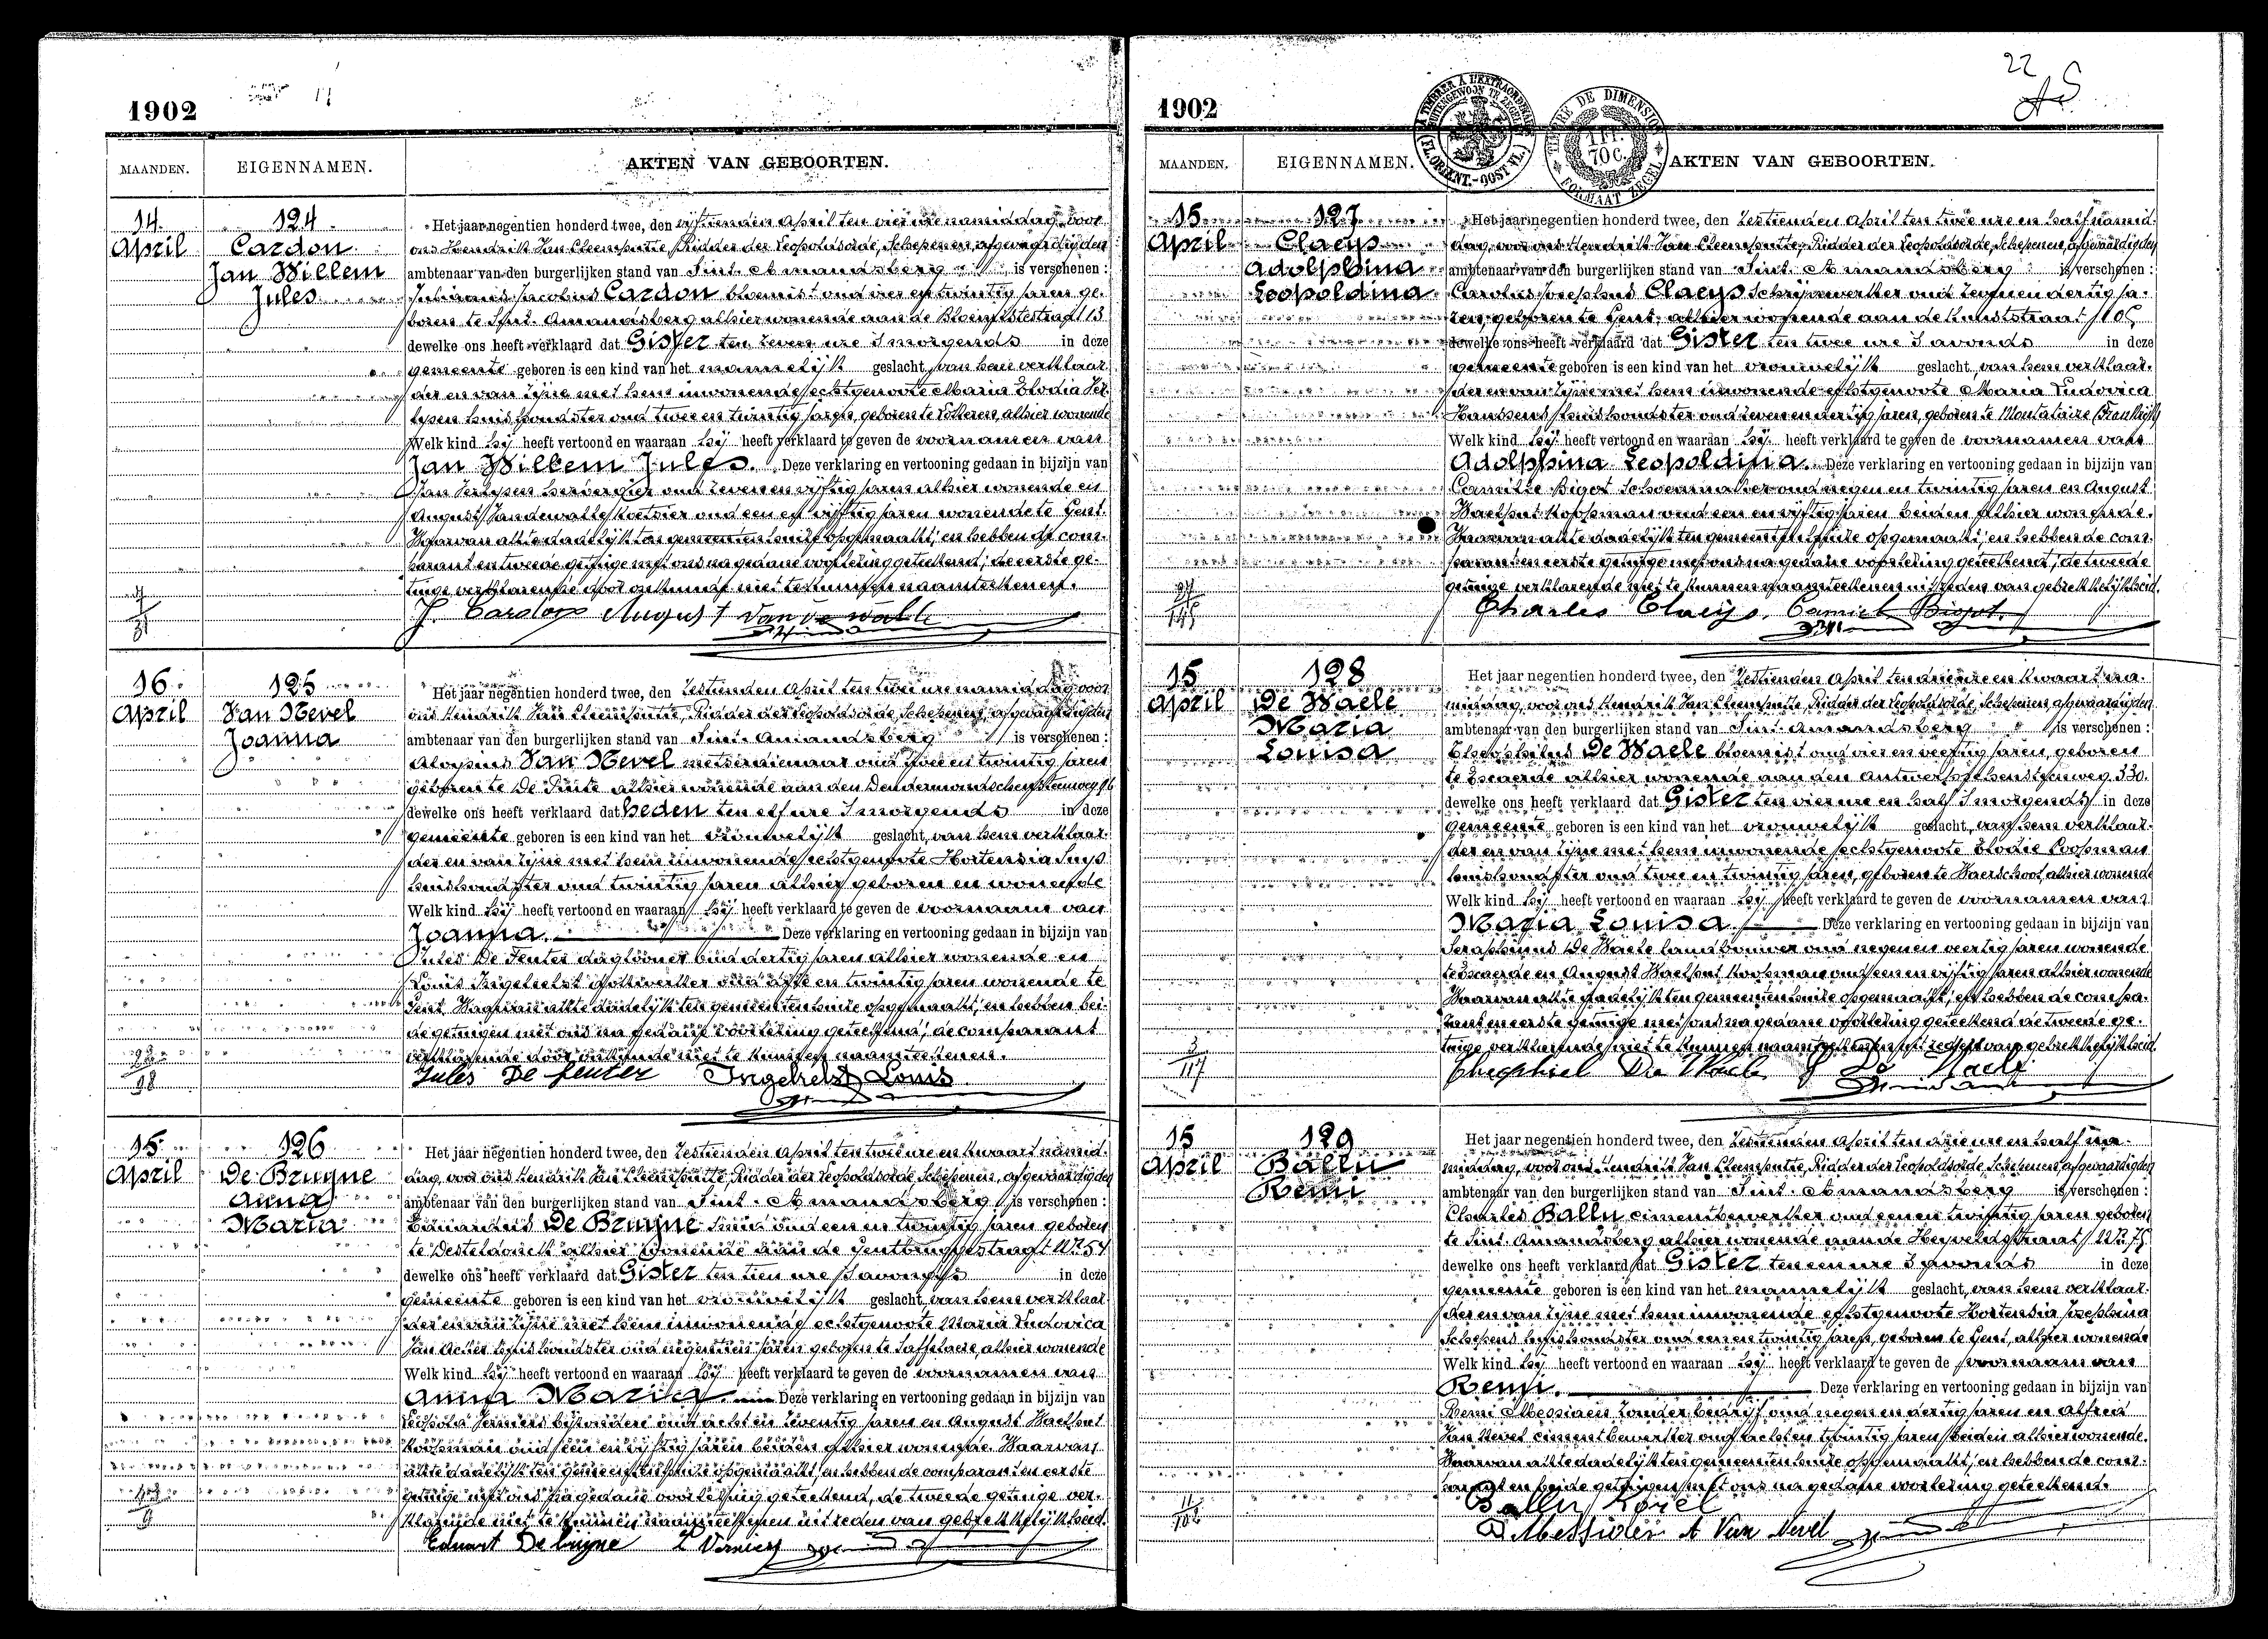 1902
MAANDEN. EIGENNAMEN. AKTEN VAN GEBOORTEN.
14 April
124
Cardon
Jan Willem
Jules
Het jaar negentien honderd twee, den vijftienden April ten vier ure namiddag, voor
ons Hendrik Van Cleemputte, Ridder der Leopoldsorde, Schepenen, afgevaardigden
ambtenaar van den burgerlijken stand van Sint-Amandsberg is verschenen :
Julianus Jacobus Cardon bloemist oud vier en twintig jaren ge-
boren te Sint-Amandsberg alhier wonende aan de Bloemistestraat 13
dewelke ons heeft verklaard dat Gister ten zeven ure 's morgends in deze
gemeente geboren is een kind van het mannelijk geslacht, van hem verklaar-
der en van zijne met hem inwonende echtgenote Maria Elodia
huishoudster oud twee en twintig jaren, geboren te Lokeren, alhier wonende
Welk kind hij heeft vertoond en waaraan hij heeft verklaard te geven de voornamen van
Jan Willem Jules. Deze verklaring en vertooning gedaan in bijzijn van
Jan herbergier oud zeven en vijftig jaren alhier wonende en
August Van de walle koetsier oud een en vijftig jaren wonende te Gent.
Waarvan akte dadelijk ten gemeentenhuize opgemaakt, en hebben de com-
parant en tweede getuige met ons na gedane voorlezing geteekend, de eerste ge-
tuige verklarende door onkunde niet te kunnen naamteekenen.
J. Cardon August Van de walle
16 April
125
Van Nevel
Joanna
Het jaar negentien honderd twee, den zestienden April ten twee ure namiddag voor
ons Hendrik Van Cleemputte, Ridder der Leopoldsorde, Schepenen, afgevaardigden
ambtenaar van den burgerlijken stand van Sint-Amandsberg is verschenen :
Aloysius Van Nevel metserdienaar oud twee en twintig jaren
geboren te De Pinte alhier wonende aan den Dendermondschensteenweg
dewelke ons heeft verklaard dat heden ten elf ure 's morgends in deze
gemeente geboren is een kind van het vrouwelijk geslacht, van hem verklaar-
der en van zijne met hem inwonende echtgenote Hortensia
huishoudster oud twintig jaren alhier geboren en wonende
Welk kind hij heeft vertoond en waaraan hij heeft verklaard te geven de voornaam van
Joanna. Deze verklaring en vertooning gedaan in bijzijn van
Jules De Feuter daglooner oud dertig jaren alhier wonende en
Louis Ingelrelst oud en twintig jaren wonende te
Gent. Waarvan akte dadelijk ten gemeentenhuize opgemaakt, en hebben bei-
de getuigen met ons na gedane voorlezing geteekend, de comparant
verklarende door onkunde niet te kunnen naamteekenen.
Jules De feuter Ingelrelst Louis
15 April
126
De Bruyne
Anna
Maria
Het jaar negentien honderd twee, den zestienden April ten twee ure en kwaart namid-
dag, voor ons Hendrik Van Cleemputte, Ridder der Leopoldsorde, Schepenen, afgevaardigden
ambtenaar van den burgerlijken stand van Sint-Amandsberg is verschenen :
De Bruyne smid oud een en twintig jaren geboren
te Desteldonck alhier wonende aan de Gentbruggestraat Nr. 54
dewelke ons heeft verklaard dat Gister ten tien ure 's avonds in deze
gemeente geboren is een kind van het vrouwelijk geslacht, van hem verklaar-
der en van zijne met hem inwonende echtgenote Maria Ludovica
Van Acker huishoudster oud negentien jaren geboren te Saffelaere, alhier wonende
Welk kind hij heeft vertoond en waaraan hij heeft verklaard te geven de voornamen van
Anna Maria. Deze verklaring en vertooning gedaan in bijzijn van
Leopold Verniers bijzondere oud acht en zeventig jaren en August Waelput
koopman oud een en vijftig jaren beiden alhier wonende. Waarvan
akte dadelijk ten gemeentenhuize opgemaakt, en hebben de comparant en eerste
getuige met ons na gedane voorlezing geteekend, de tweede getuige ver-
klarende niet te kunnen naamteekenen uit reden van gebrekkelijkheid.
Eduart De bruyne L Verniers
1902
22
MAANDEN. EIGENNAMEN. AKTEN VAN GEBOORTEN.
15 April
127
Claeys
Adolphina
Leopoldina
Het jaar negentien honderd twee, den zestienden April ten twee ure en half namid-
dag, voor ons Hendrik Van Cleemputte, Ridder der Leopoldsorde, Schepenen, afgevaardigden
ambtenaar van den burgerlijken stand van Sint-Amandsberg is verschenen :
Carolus Josephus Claeys Schrijnwerker oud zeven en dertig ja-
ren, geboren te Gent, alhier wonende aan de Kunststraat 105
dewelke ons heeft verklaard dat Gister ten twee ure 's avonds in deze
gemeente geboren is een kind van het vrouwelijk geslacht, van hem verklaar-
der en van zijne met hem inwonende echtgenote Maria Ludovica
Haussens huishoudster oud zeven en dertig jaren, geboren te Montataire (Frankrijk)
Welk kind hij heeft vertoond en waaraan hij heeft verklaard te geven de voornamen van
Adolphina Leopoldina. Deze verklaring en vertooning gedaan in bijzijn van
Camille Bigot Schoenmaker oud negen en twintig jaren en August
Waelput koopman oud een en vijftig jaren beiden alhier wonende.
Waarvan akte dadelijk ten gemeentenhuize opgemaakt, en hebben de com-
parant en eerste getuige met ons na gedane voorlezing geteekend, de tweede
getuige verklarende niet te kunnen naamteekenen uit reden van gebrekkelijkheid.
Charles Claeys. Camiel Bigot
15 April
128
De Waele
Maria
Louisa
Het jaar negentien honderd twee, den zestienden April ten drie ure en kwaart na-
middag, voor ons Hendrik Van Cleemputte, Ridder der Leopoldsorde, Schepenen, afgevaardigden
ambtenaar van den burgerlijken stand van Sint-Amandsberg is verschenen :
Theophilus De Waele bloemist oud vier en veertig jaren, geboren
te Evergem alhier wonende aan den Antwerpschensteenweg 330.
dewelke ons heeft verklaard dat Gister ten vier ure en half 's morgends in deze
gemeente geboren is een kind van het vrouwelijk geslacht, van hem verklaar-
der en van zijne met hem inwonende echtgenote Elodie Coopman
huishoudster oud twee en twintig jaren, geboren te Waerschoot, alhier wonende
Welk kind hij heeft vertoond en waaraan hij heeft verklaard te geven de voornamen van
Maria Louisa Deze verklaring en vertooning gedaan in bijzijn van
Seraphinus De Waele landbouwer oud negen en veertig jaren wonende
te en August Waelput koopman oud een en vijftig jaren alhier wonende
Waarvan akte dadelijk ten gemeentenhuize opgemaakt, en hebben de compa-
rant en eerste getuige met ons na gedane voorlezing geteekend de tweede ge-
tuige verklarende niet te kunnen naamteekenen uit reden van gebrekkelijkheid.
Theophiel De Waele De Waele
15 April
129
Ballu
Remi
Het jaar negentien honderd twee, den zestienden April ten drie ure en half na-
middag, voor ons Hendrik Van Cleemputte, Ridder der Leopoldsorde, Schepenen, afgevaardigden
ambtenaar van den burgerlijken stand van Sint-Amandsberg is verschenen :
Charles Ballu cimentbewerker oud een en twintig jaren geboren
te Sint-Amandsberg alhier wonende aan de Heyveldstraat Nr. 75
dewelke ons heeft verklaard dat Gister ten een ure 's avonds in deze
gemeente geboren is een kind van het mannelijk geslacht, van hem verklaar-
der en van zijne met hem inwonende echtgenote Hortensia Josephina
Schepens huishoudster oud een en twintig jaren, geboren te Gent, alhier wonende
Welk kind hij heeft vertoond en waaraan hij heeft verklaard te geven de voornaam van
Remi. Deze verklaring en vertooning gedaan in bijzijn van
Remi Messiaen zonder bedrijf oud negen en dertig jaren en Alfred
Van Nevel cimentbewerker oud acht en twintig jaren beiden alhier wonende.
Waarvan akte dadelijk ten gemeentenhuize opgemaakt, en hebben de com-
parant en beide getuigen met ons na gedane voorlezing geteekend.
Ballu Karel
A Van Nevel